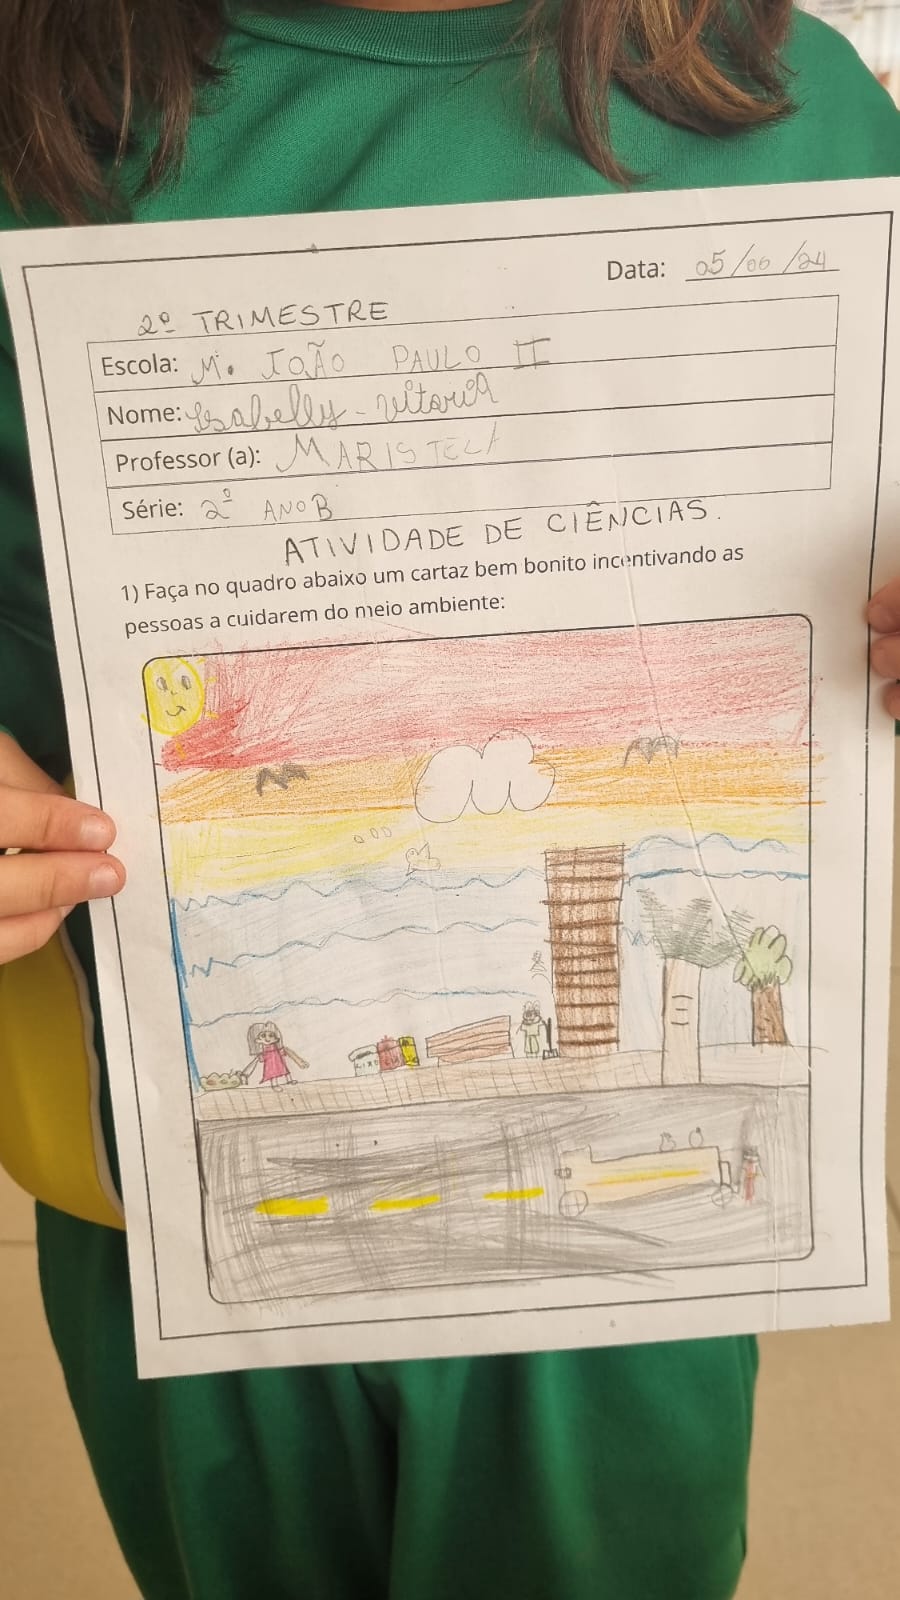 Data: 05/06/24
2º TRIMESTRE
Escola: M. JOÃO PAULO II
Nome: Isabelly-Vitoria
Professor (a): MARISTELA
Série: 2º ANO B
ATIVIDADE DE CIÊNCIAS.
1) Faça no quadro abaixo um cartaz bem bonito incentivando as
pessoas a cuidarem do meio ambiente:
LIXO